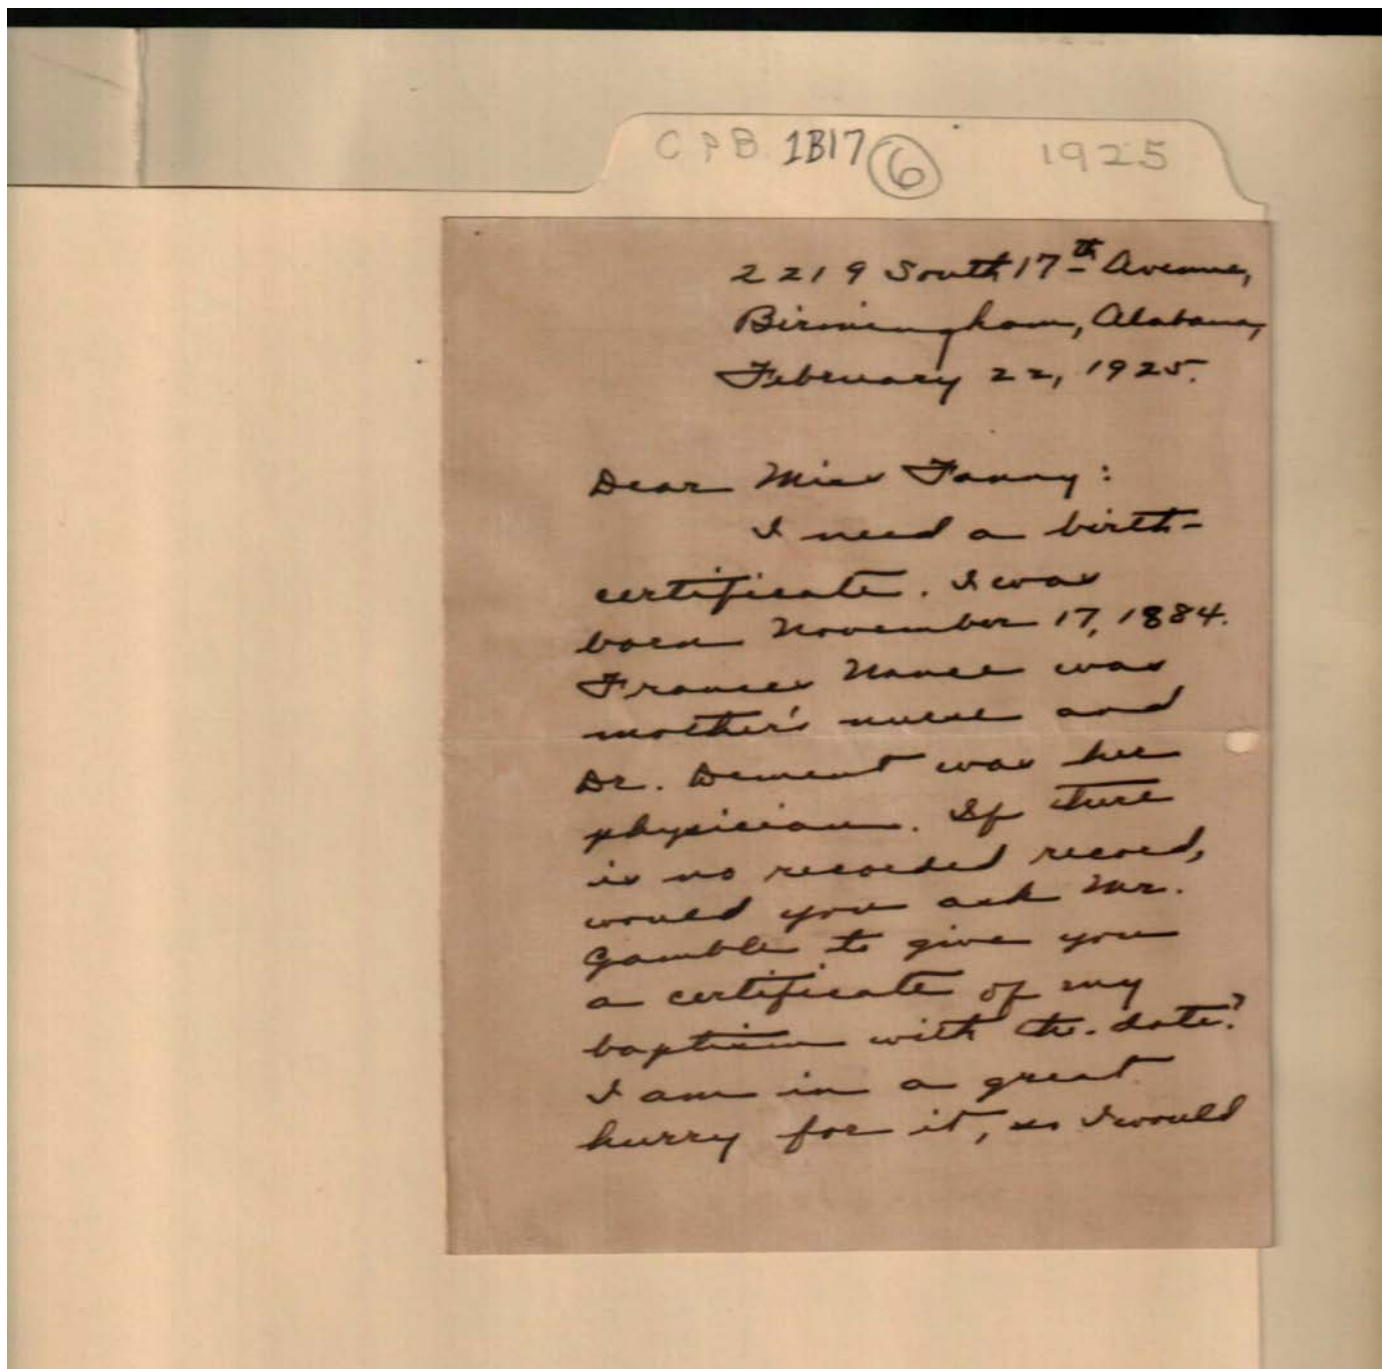 C P B 1B17 6 1925
2219 South 17th Avenue,
Birmingham, Alabama,
February 22, 1925.
Dear Miss Fanny:
I need a birth-
certificate. I was
born November 17, 1884.
Frances Nance was
mother's nurse and
Dr. Dement was her
physician. If there
is no recorded record,
would you ask Mr.
Gamble to give you
a certificate of my
baptism with the date?
I am in a great
hurry for it, so I would